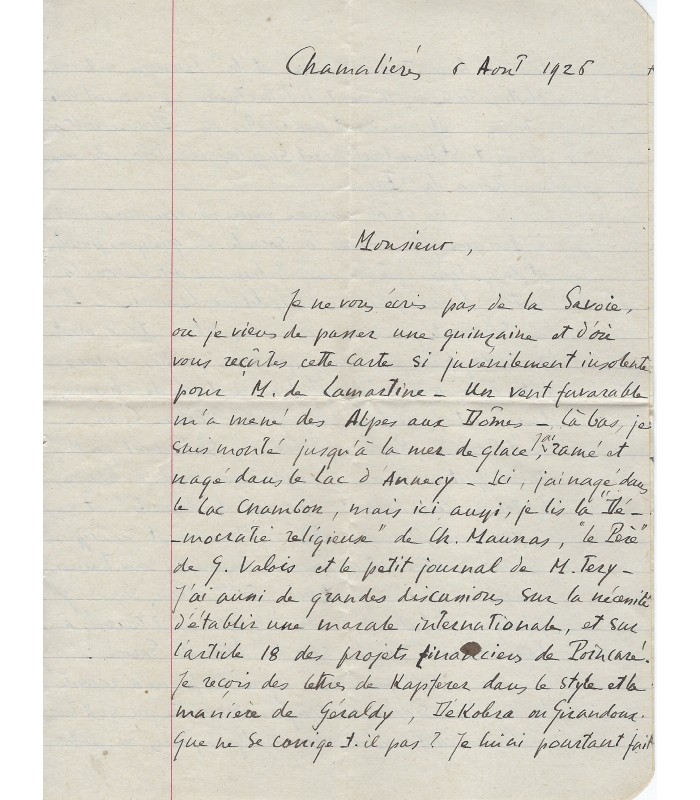 Chamalières 6 Août 1926
Monsieur,
Je ne vous écris pas de la Savoie,
où je viens de passer une quinzaine et d'où
vous reçûtes cette carte si juvénilement insolente
pour M. de Lamartine - Un vent favorable
m'a mené des Alpes aux Dômes - Là bas, je
suis monté jusqu'à la mer de glace, j'ai ramé et
nagé dans le Lac d'Annecy - Ici, j'ai nagé dans
le Lac Chambon, mais ici aussi, je lis la "Dé-
-mocratie religieuse" de Ch. Maurras, "le Père"
de G. Valois et le petit journal de M. Tery -
J'ai aussi de grandes discussions sur la nécessité
d'établir une morale internationale, et sur
l'article 18 des projets financiers de Poincaré.
Je reçois des lettres de Kapferer dans le style et la
manière de Géraldy, Dékobra ou Giraudoux.
Que ne se corrige t-il pas ? Je lui ai pourtant fait